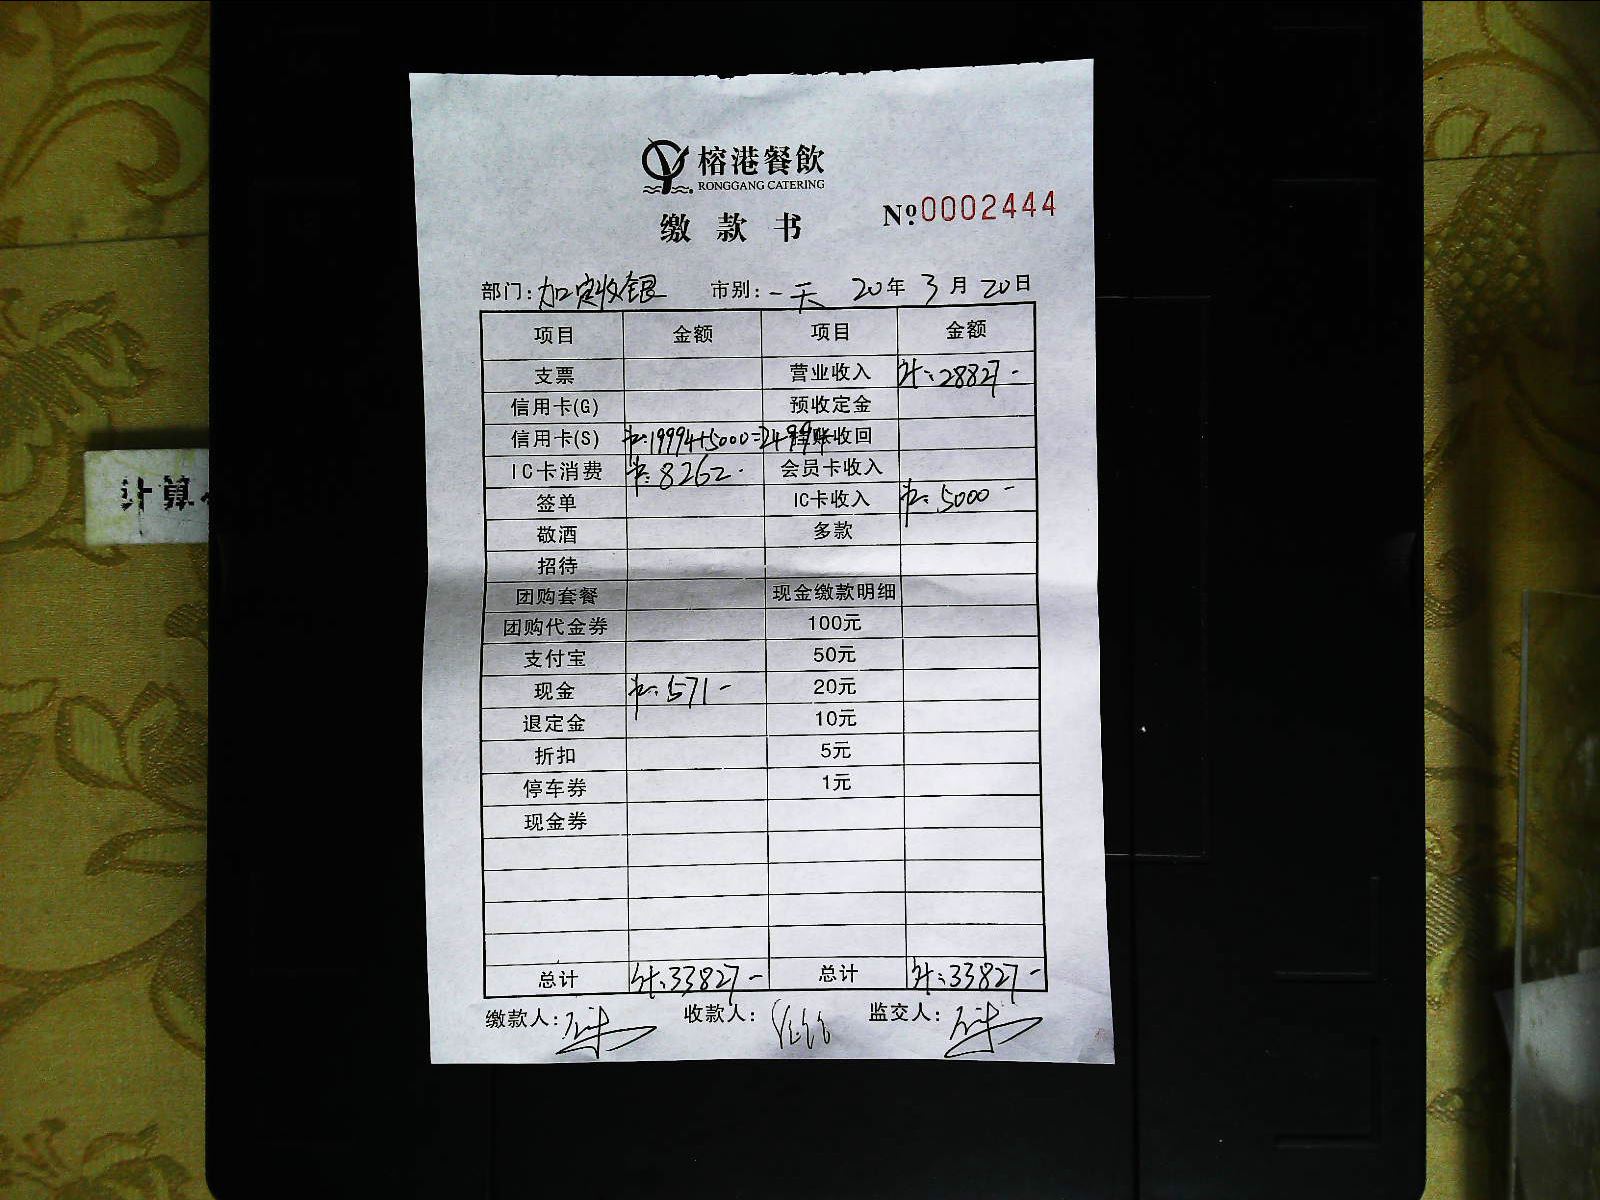 榕港餐飲
RONGGANG CATERING
缴款书
№0002444
部门: 加定收银 市别: 一天 20年 3月 20日
项目 金额 项目 金额
支票 营业收入 计:28827-
信用卡(G) 预收定金
信用卡(S) 卡:19994+5000=24994 挂账收回
IC卡消费 卡:8262- 会员卡收入
签单 IC卡收入 卡:5000-
敬酒 多款
招待
团购套餐 现金缴款明细
团购代金券 100元
支付宝 50元
现金 卡:571- 20元
退定金 10元
折扣 5元
停车券 1元
现金券
总计 计:33827- 总计 计:33827-
缴款人: 收款人: 监交人:
计算